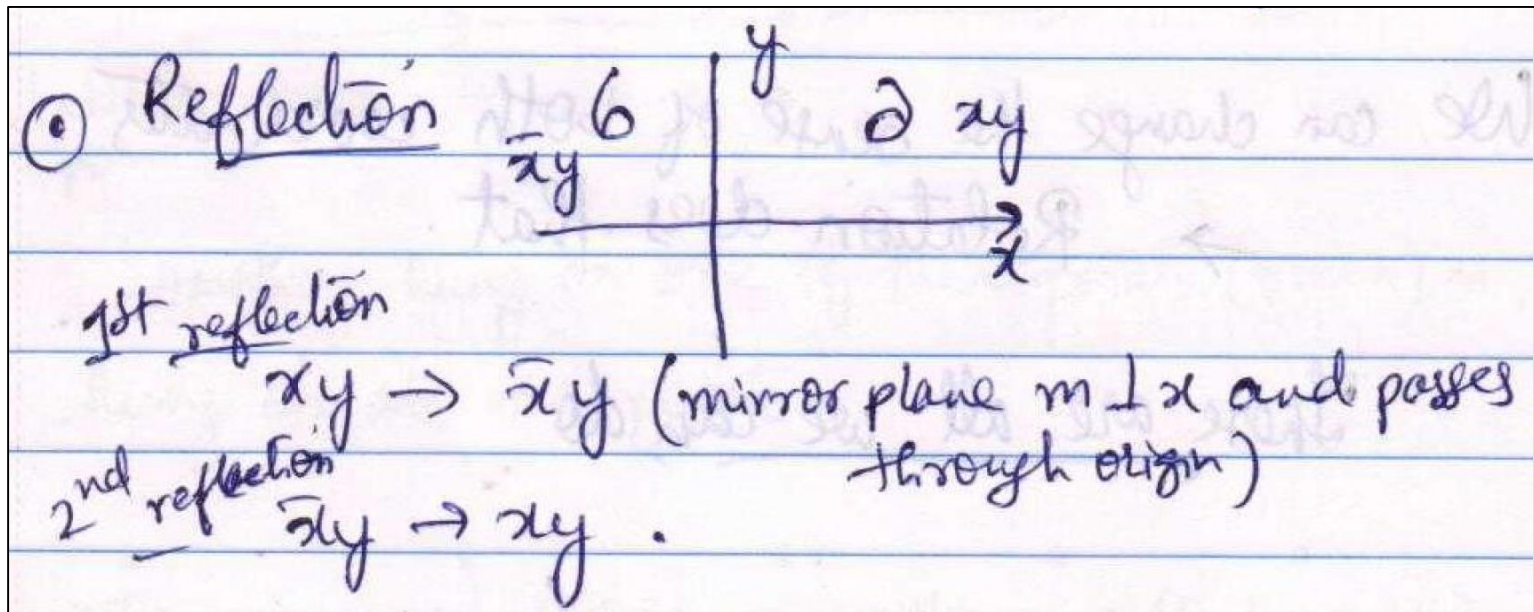 ⊙ Reflection 6 y ∂ xy
x̄y
x
1st reflection
xy → x̄y (mirror plane m ⊥ x and passes
through origin)
2nd reflection
x̄y → xy .